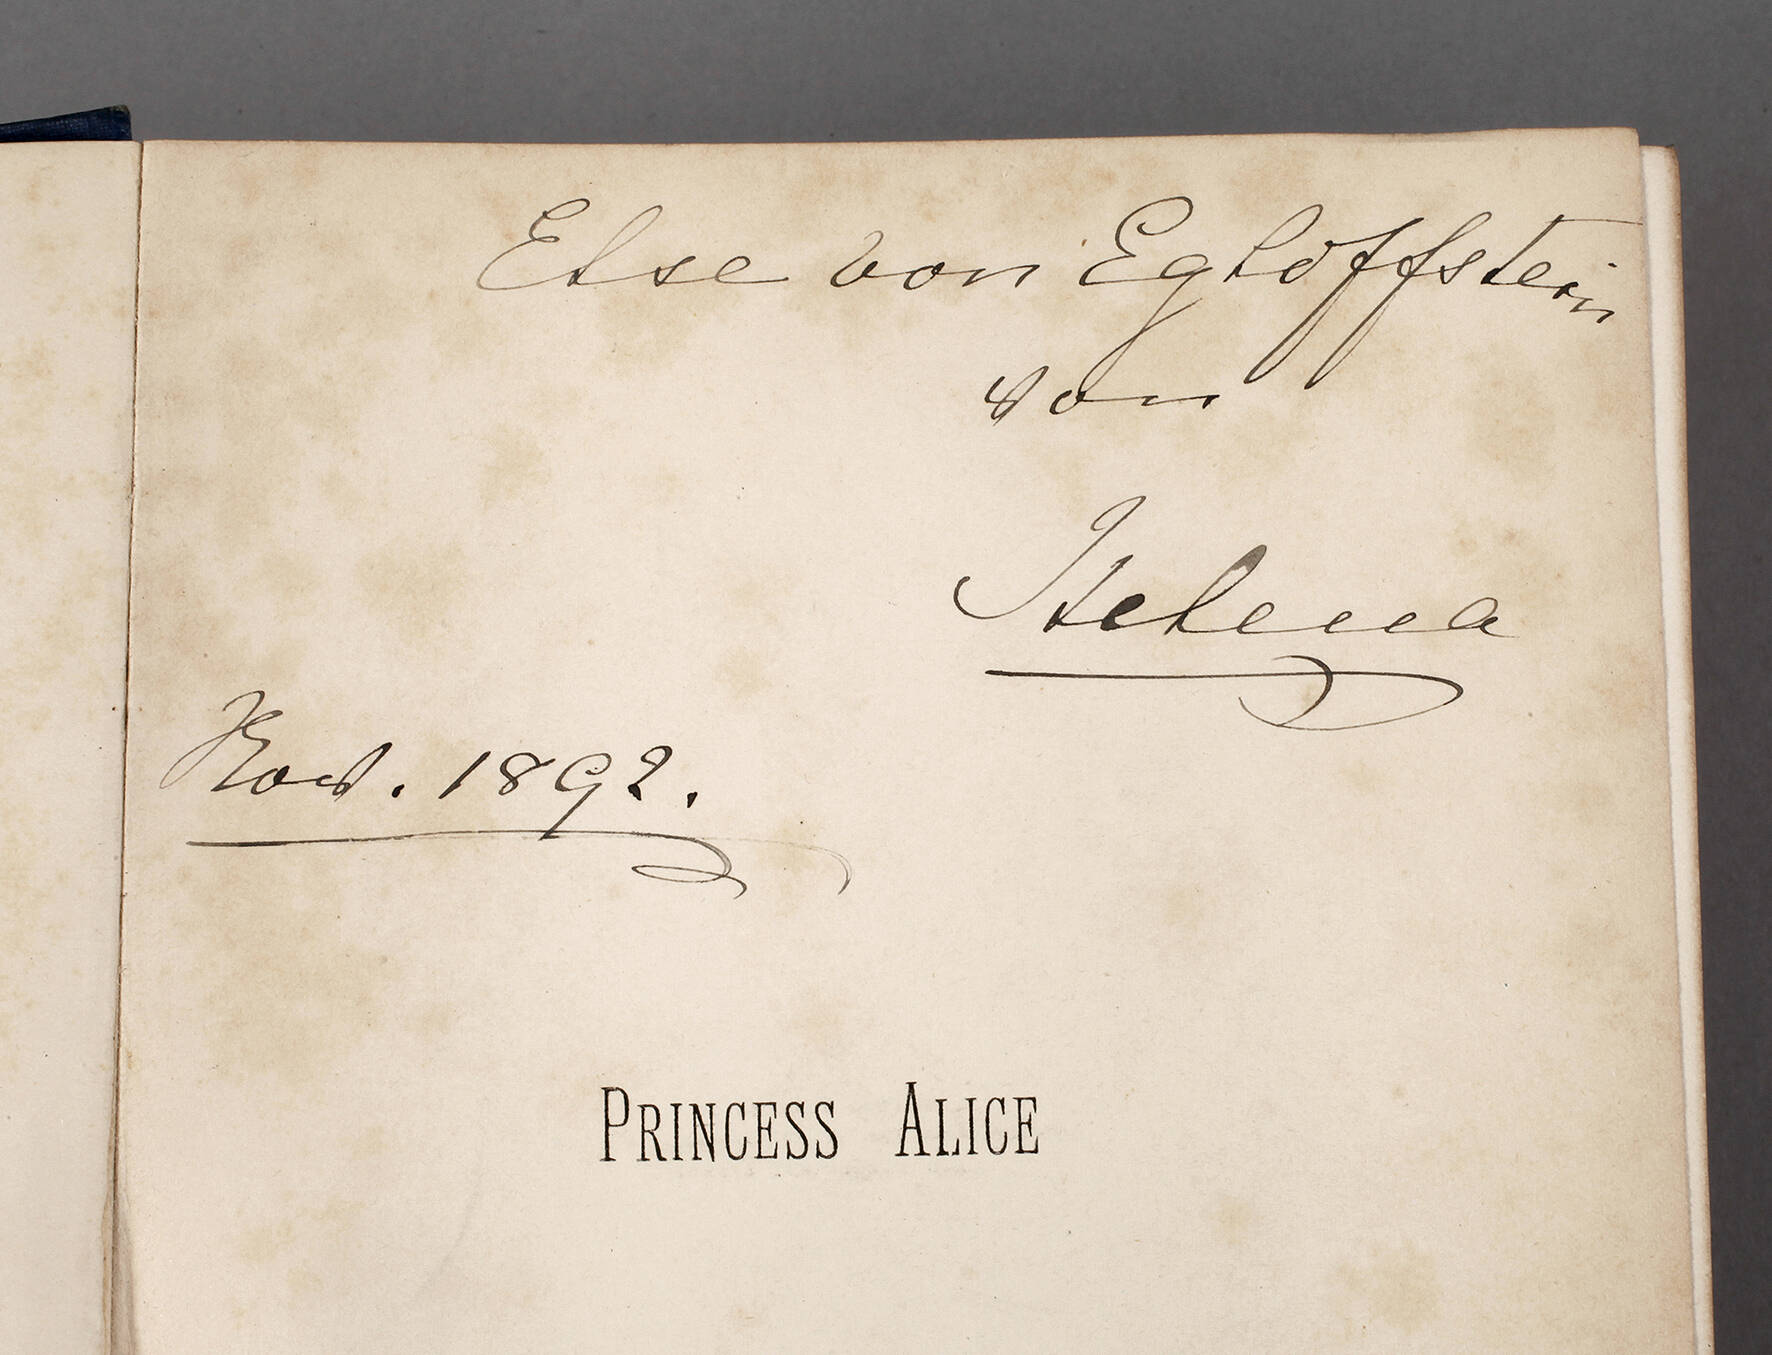 Else von Egloffstein
von
Helena
Nov. 1892.
PRINCESS ALICE